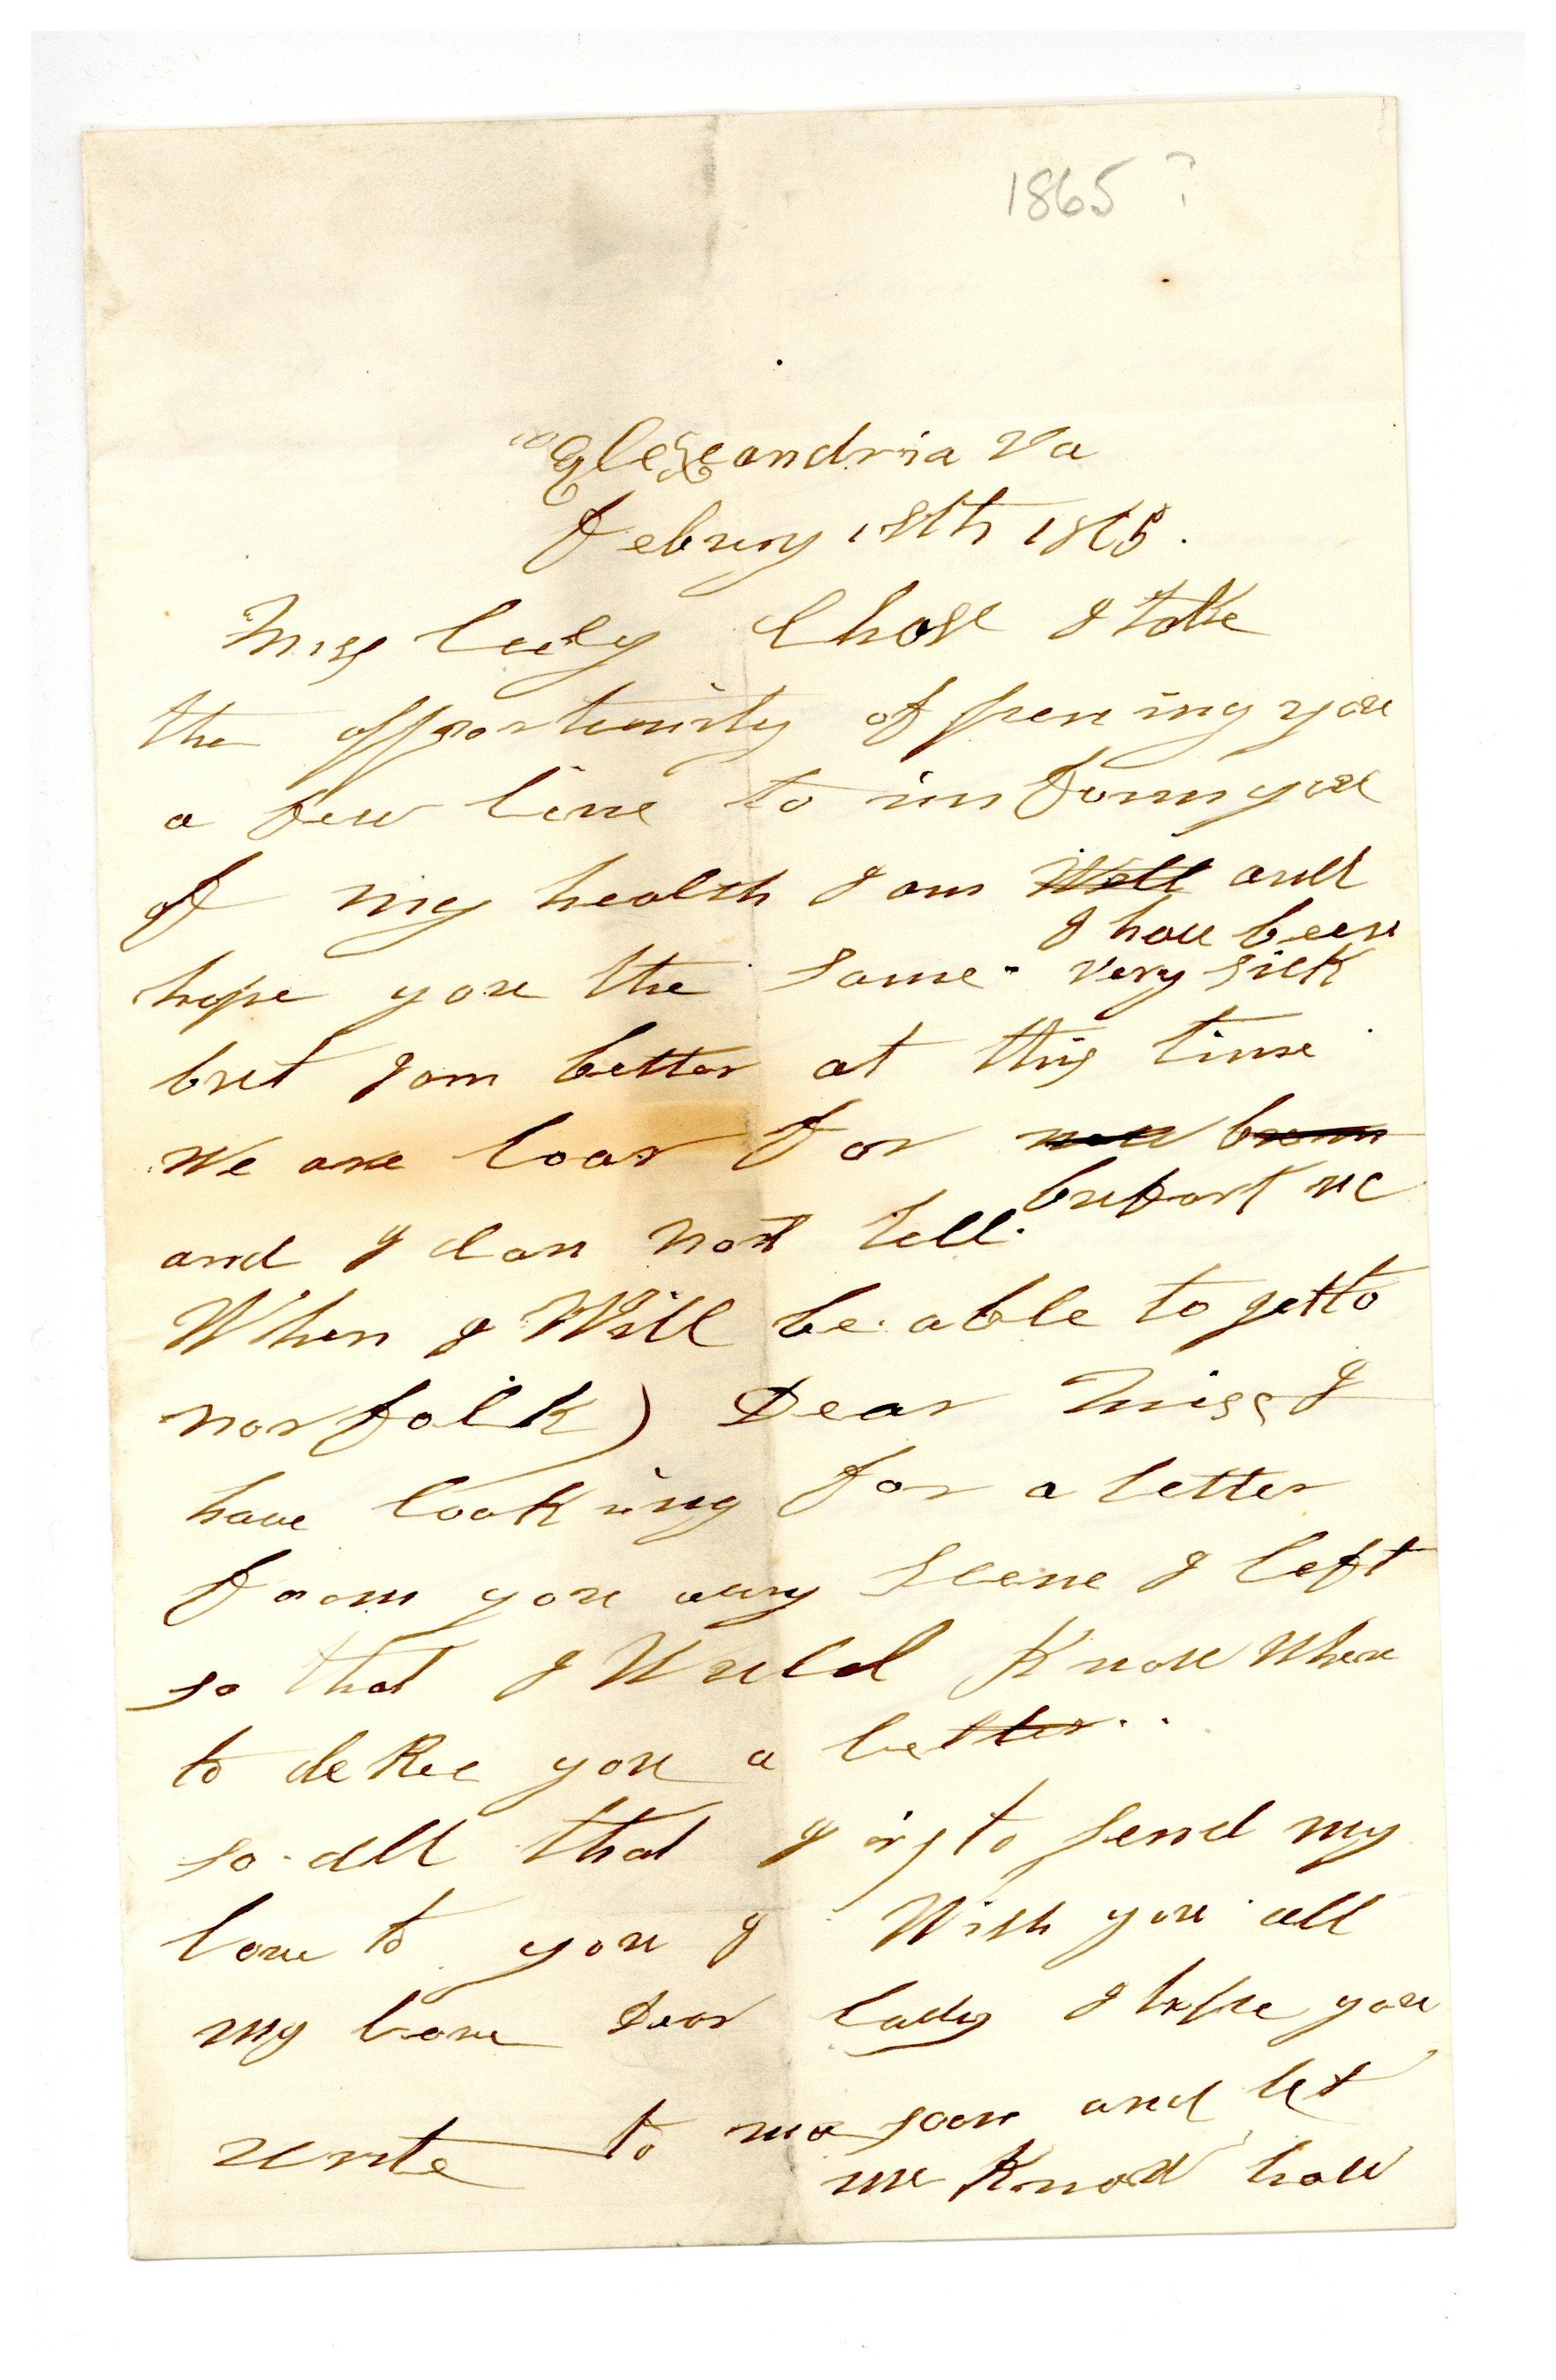 1865 ?
Alexandria Va
Febury 18th 1865.
Miss lucy Chase I take
the opportunity of pening you
a few line to in form you
of my health I am Well and
I have been
hope you the same very sick
but I am better at this time
We are loar for new bern
bufort nc
and I can not tell.
When I Will be able to getto
norfolk) Dear Miss I
have looking for a letter
from you evry scene I left
so that I Wuld Know Where
to deRec you a letter..
so all that I is to send my
love to you I Wish you all
my love Dear lady I hope you
write to me soon and let
me Know how